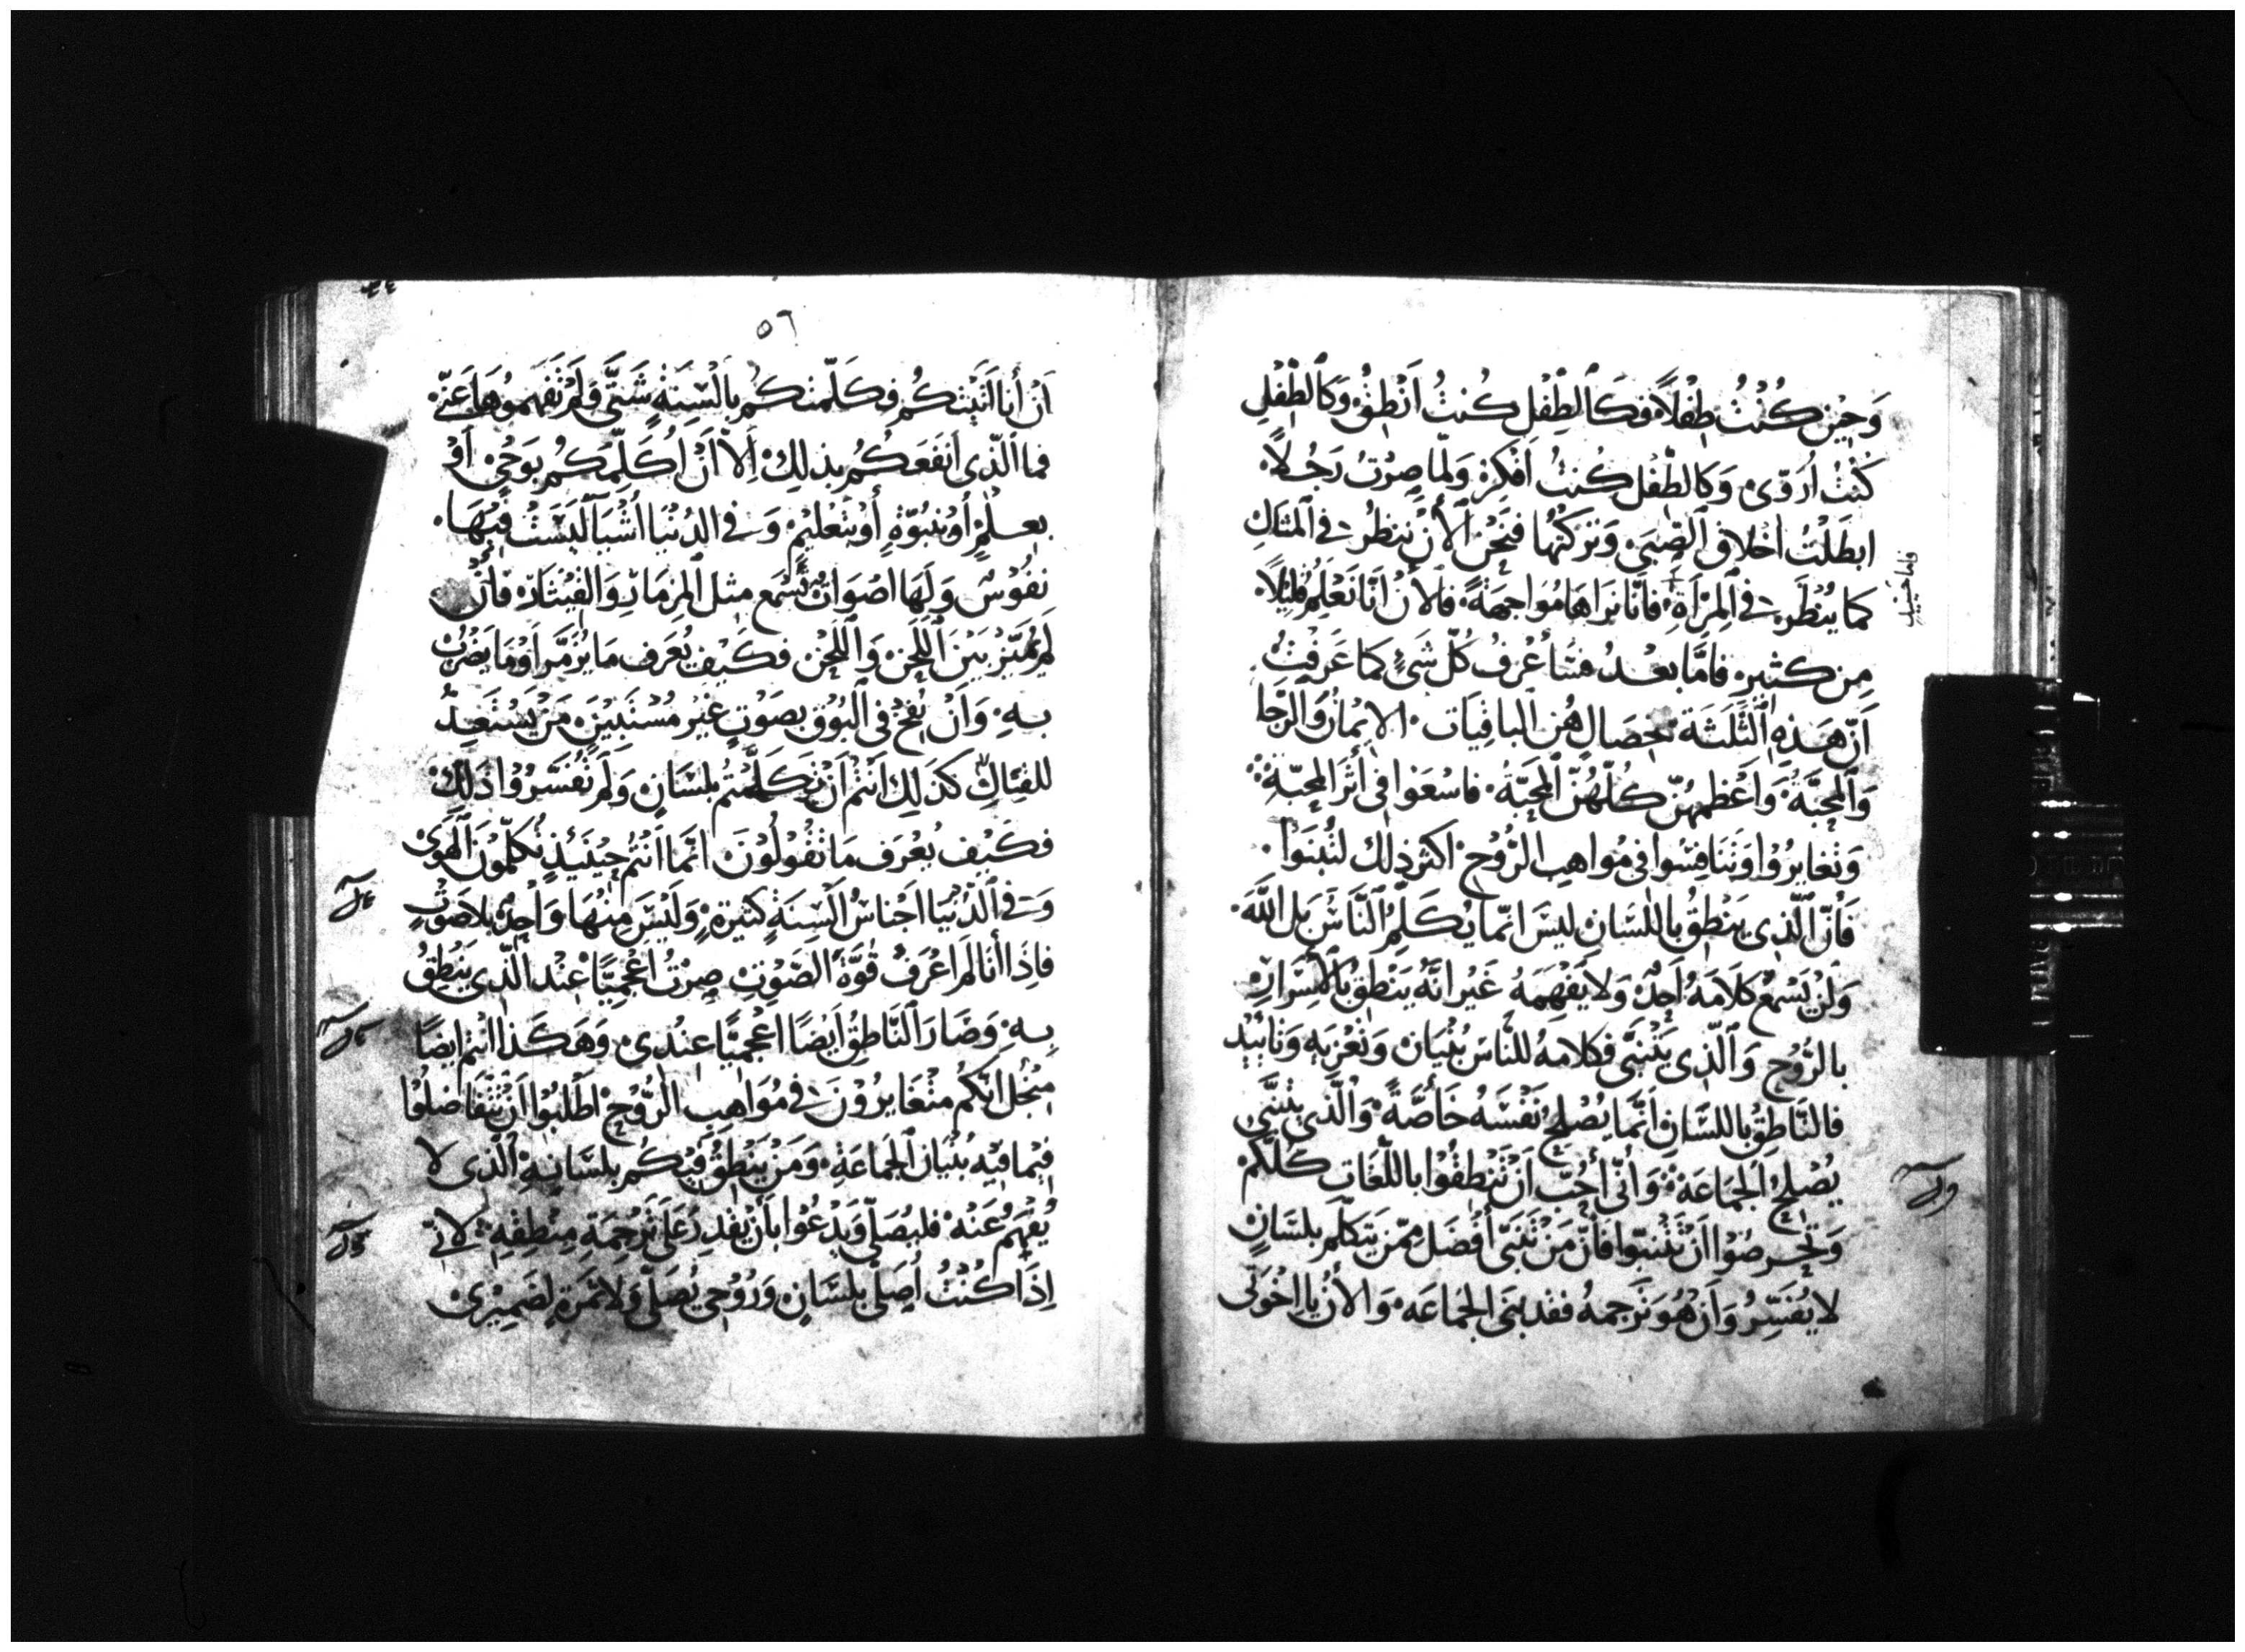 وَحِيْنَ كُنْتُ طِفْلاً فكَالطِّفْل كُنتُ اَنْطِقُ وَكَالطِّفْلِ
كُنْتُ اُرَوّى وَكَالطِّفْل كُنتُ اَفْكِرُ وَلَمّا صِرْتُ رَجُلاً
ابطَلْتُ اخْلاق الصِّبَى وَتَرَكْتُهَا فنَحْنُ الأنَ نَنظُر فى المثَال
كما يُنْظَر فى المِرْآةِ فَانّا نرَاهَا مُوَاجهَةً فَالأنَ اَنَا نَعْلَمُ قلِيْلاً
فاما حينيذ
مِن كثيرٍ فامَّا بعْدُ فسَأعْرِفُ كلّ شَئٍ كما عَرَفْتُ
اَنّ هَذِهِ الثَّلَثَة خِصَالٍ هُن الباقِيَات الايْمَانُ وَالرّجا
وَالمحَبَّةُ وَاَعْظمهُنّ كلّهُنّ المَحَبَّةُ فاسْعَوا فى أثرَ المحَبّةِ
وَتغايرُوْا وَتنَافسُوا فى مُواهِب الرُّوْحِ اكثر ذلِكَ لتُنبَوْا
فَأنّ الَّذِى يَنْطِقُ باللسَّان ليسَ انّما يُكَلِّمُ النَّاسَ بَل اللَّه
وَلنْ يَسْمَعَ كلَامَهُ اَحِدٌ وَلا يَفْهَمَهُ غَيْر انَّهُ يَنْطِقُ بالأسْرَارِ
بالرُّوْحِ وَالّذِى يَتْنَبَّى فكلامهُ للنَّاسَ بُنْيَان وَتعْزيَه وَتأييْد
فالنَّاطِقُ باللسَّانِ اَنَّما يُصْلِحُ نَفْسَهُ خَاصَّةً وَالّذِى يتنَبَّى
يُصْلِحُ الجمَاعَة وَأنّى أحِبّ اَنْ تَنْطِقُوْا باللّغَاتِ كلّكُمْ
وَتحْرصُوْا اَنْ تَتْنَبّوا فَأنّ مَنْ تَنَبّى أفْضَل ممّن يتكلّم بلسَانٍ
لا يُفَسِّرُ وَاَنْ هُوَ تَرجمهُ فقد بنى الجمَاعَه وَالأنَ يا اخْوَتى
٥٦
اَنْ أنا اَتَيْتكُم فكَلّمتكُم بالْسِنَةٍ شَتَّى وَلَمْ تَفهَمُوْهَا عَنّى
فما الّذِى انفَعكُم بذلِكَ اِلاّ اَنْ اُكَلِّمَكُم بوَحْىٍ اَوْ
بعلْمٍ اَوْ بنبُوّةٍ أوْ بتَعْليْمٍ وَفى الدُنْيَا اشْيَا لَيْسَتْ فيْهَا
نفُوْسٌ وَلَهَا اصْوَاتٌ تُسْمَع مثل المِزمَارِ وَالقيْثَارَه فأنْ
لمْ يُمَيّزْ بَيْنَ اللّحْنِ وَاللّحْن فكَيْف يُعَرَف مَا يُزَمَّر اَوْ مَا يَضْرِبُ
بهِ وَاَنْ نُفِخْ فى البُوْق بصَوْتٍ غيْر مُسْتَبيْنٍ مَنْ يَسْتَعِدُّ
للقتَالِ كذَلِكَ اَنتُمْ اَنْ تكَلّمتُم بلسَانٍ وَلَمْ تفَسّرُوْا ذَلِكَ
فكَيْف يُعْرَف مَا تقُوْلُوْنَ انّما اَنْتُم حِيْنَيْذٍ تُكلّمُوْن الهَوَى
وَفى الدُنْيَا اجْناسُ اَلْسِنَةٍ كثيْرةٍ وَلَيْسَ مِنْهَا وَاحِدٌ بلا صَوْتٍ
فاذَا أنا لَم اعْرف قُوَّة الصَّوْتِ صِرْتُ اعْجَميًّا عِنْدَ الّذى يَنْطِقُ
بهِ وَصَارَ النَّاطِقُ اَيْضًا اعْجَميًّا عِنْدِى وَهَكَذَا انتم ايضًا
مِنْ اجْل انّكُم متغَايرُوْنَ فى مُوَاهِب الرُّوْحِ اطْلبُوْا اَنْ تتفَاضلُوْا
فيْما فيْه بُنْيَان الجمَاعَةِ وَمَنْ يَنْطِقُ فيْكُم بلسَانِهِ الّذِى لا
يُفْهَمُ عَنْه فليُصَلّى وَيَدْعُوْا بأنْ يقْدِرَ عَلَى تَرجمَةِ مِنْطِقِهِ لانّى
اِذَا كُنْتُ اُصَلّى بلسَّانٍ وَرُوْحِى يُصَلّى وَلا ثمَرَة لضَمِيْرِى